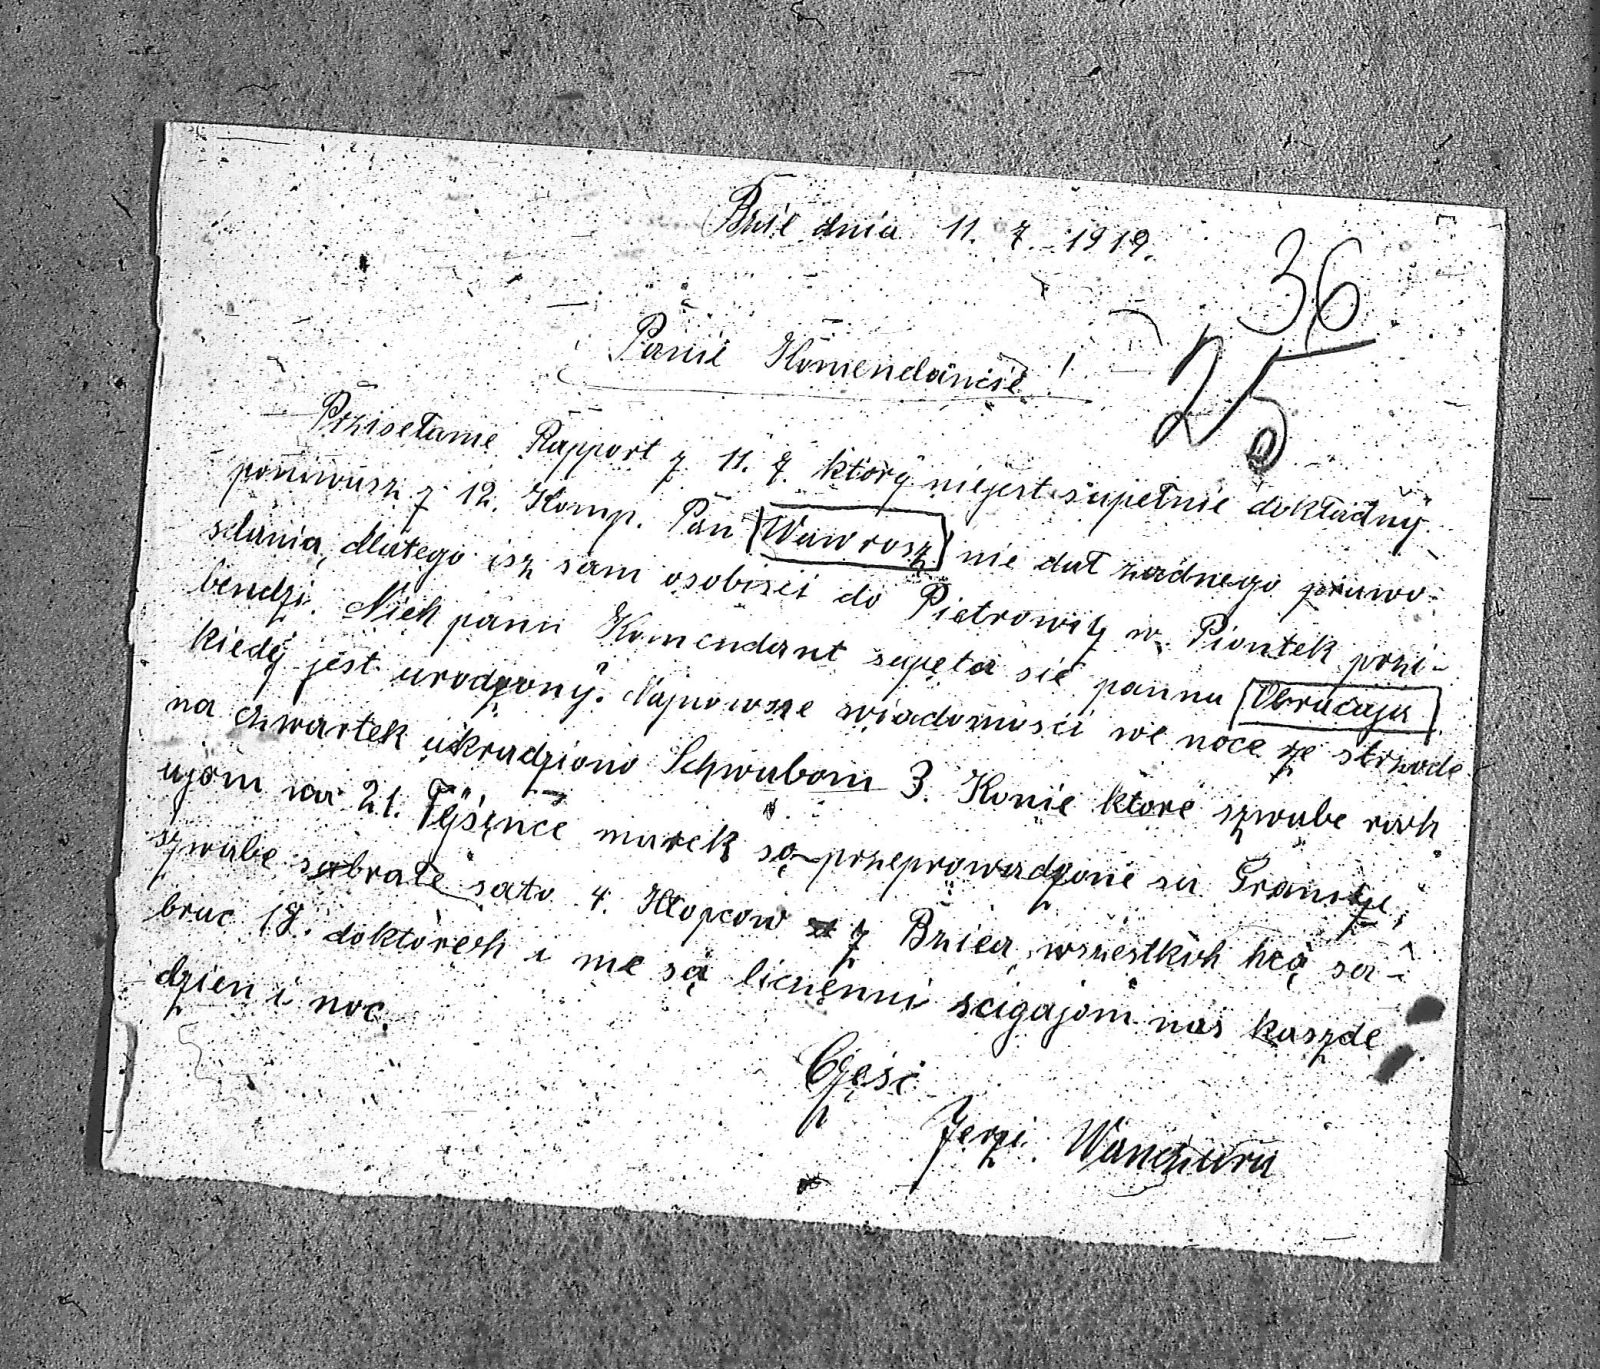 Bzie dnia 11. 7. 1919.
36
25
Panie Komendancie!
Przisełame Rapport z 11. 7. ktory niejest supełnie dokładny
poniwusz z 12. Komp. Pan Wawrosz nie dał zadnego
sdania, dlatego isz sam osobisci do Pietrowitz w Piontek przi-
bendzi. Niek panu Komendant sapęta sie pannu
kiedy jest urodzony. Najnowsze wiadomosci we noce ze strzode
na czwartek ukradziono Schwabom 3. Konie ktore szwabe rach
ujom na 21. Tysięnce marek są przeprowadzone sa Granitze,
szwabe sabrałe sato 4. Kłopcow z Bzien wszestkich hcą sa-
brac 18. doktorech i me są liczęnni scigajom nas kaszde
dzien i noc.
Czesc
Jerzi